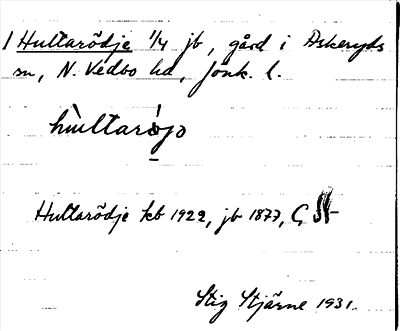 1 Hultarödje 1/4 jb, gård i Askeryds
sn, N. Vedbo hd, Jönk. l.
Hultarödje kb 1922, jb 1877, G, St
Stig Stjärne 1931.